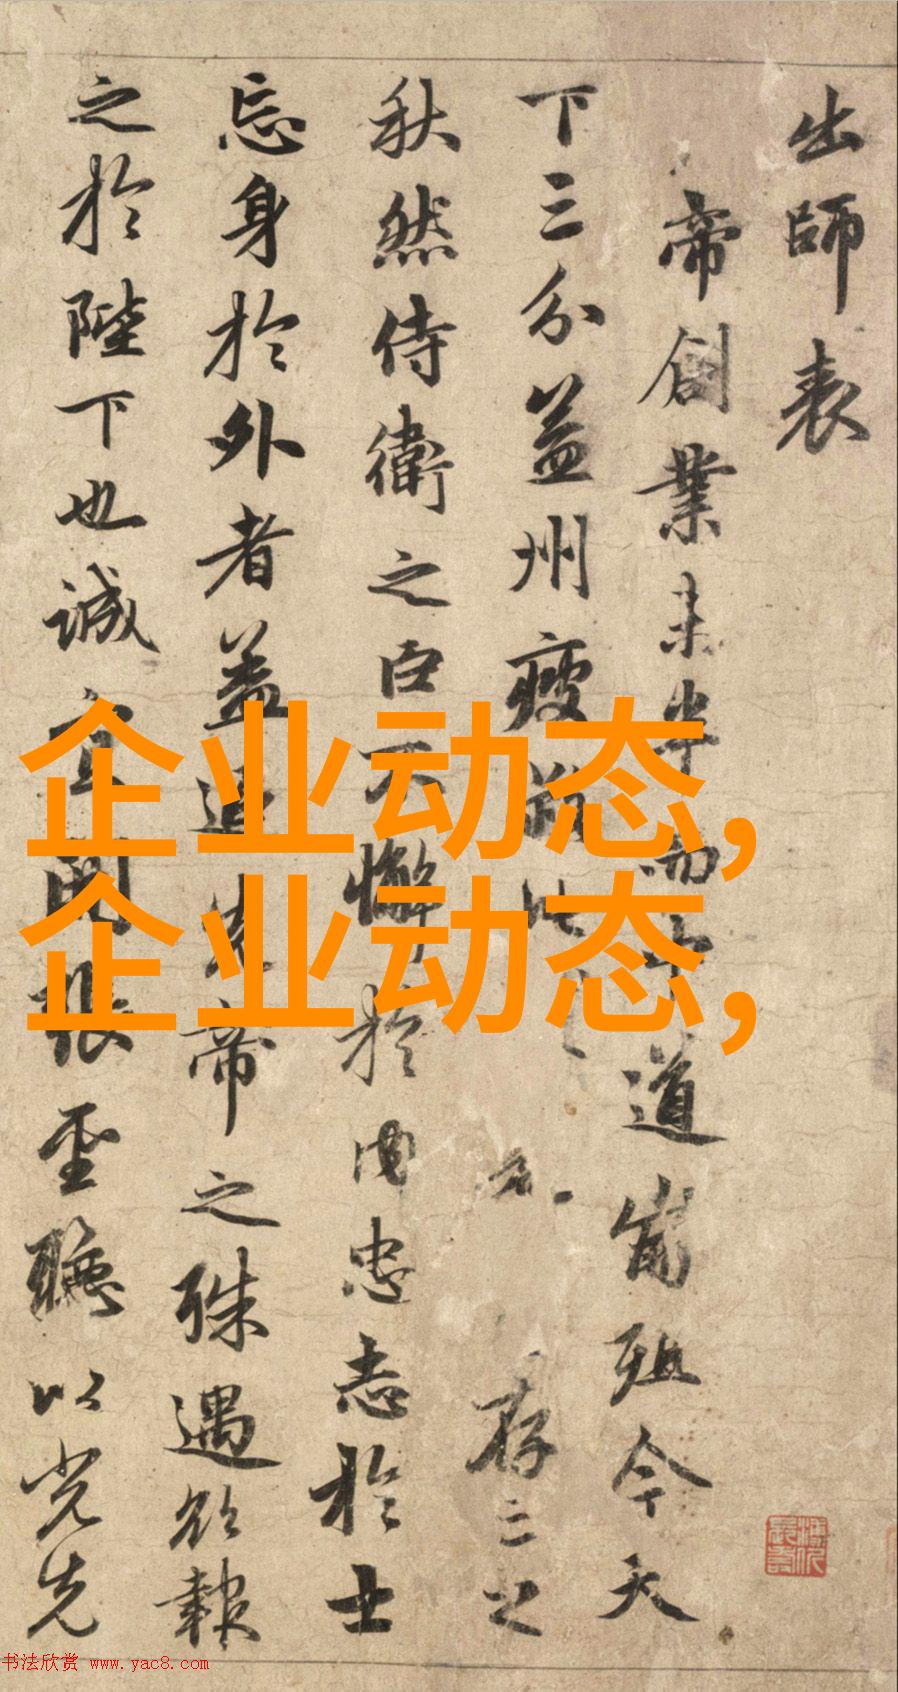 出師表
帝創業未半而中道崩殂今天
下三分益州疲敝此存亡之
秋然侍衛之臣不懈於内忠志於士
忘身於外者蓋追先帝之殊遇欲報
之於陛下也誠宜開張聖聽以光先
企业动态,
企业动态,
书法欣赏 www.yac8.com